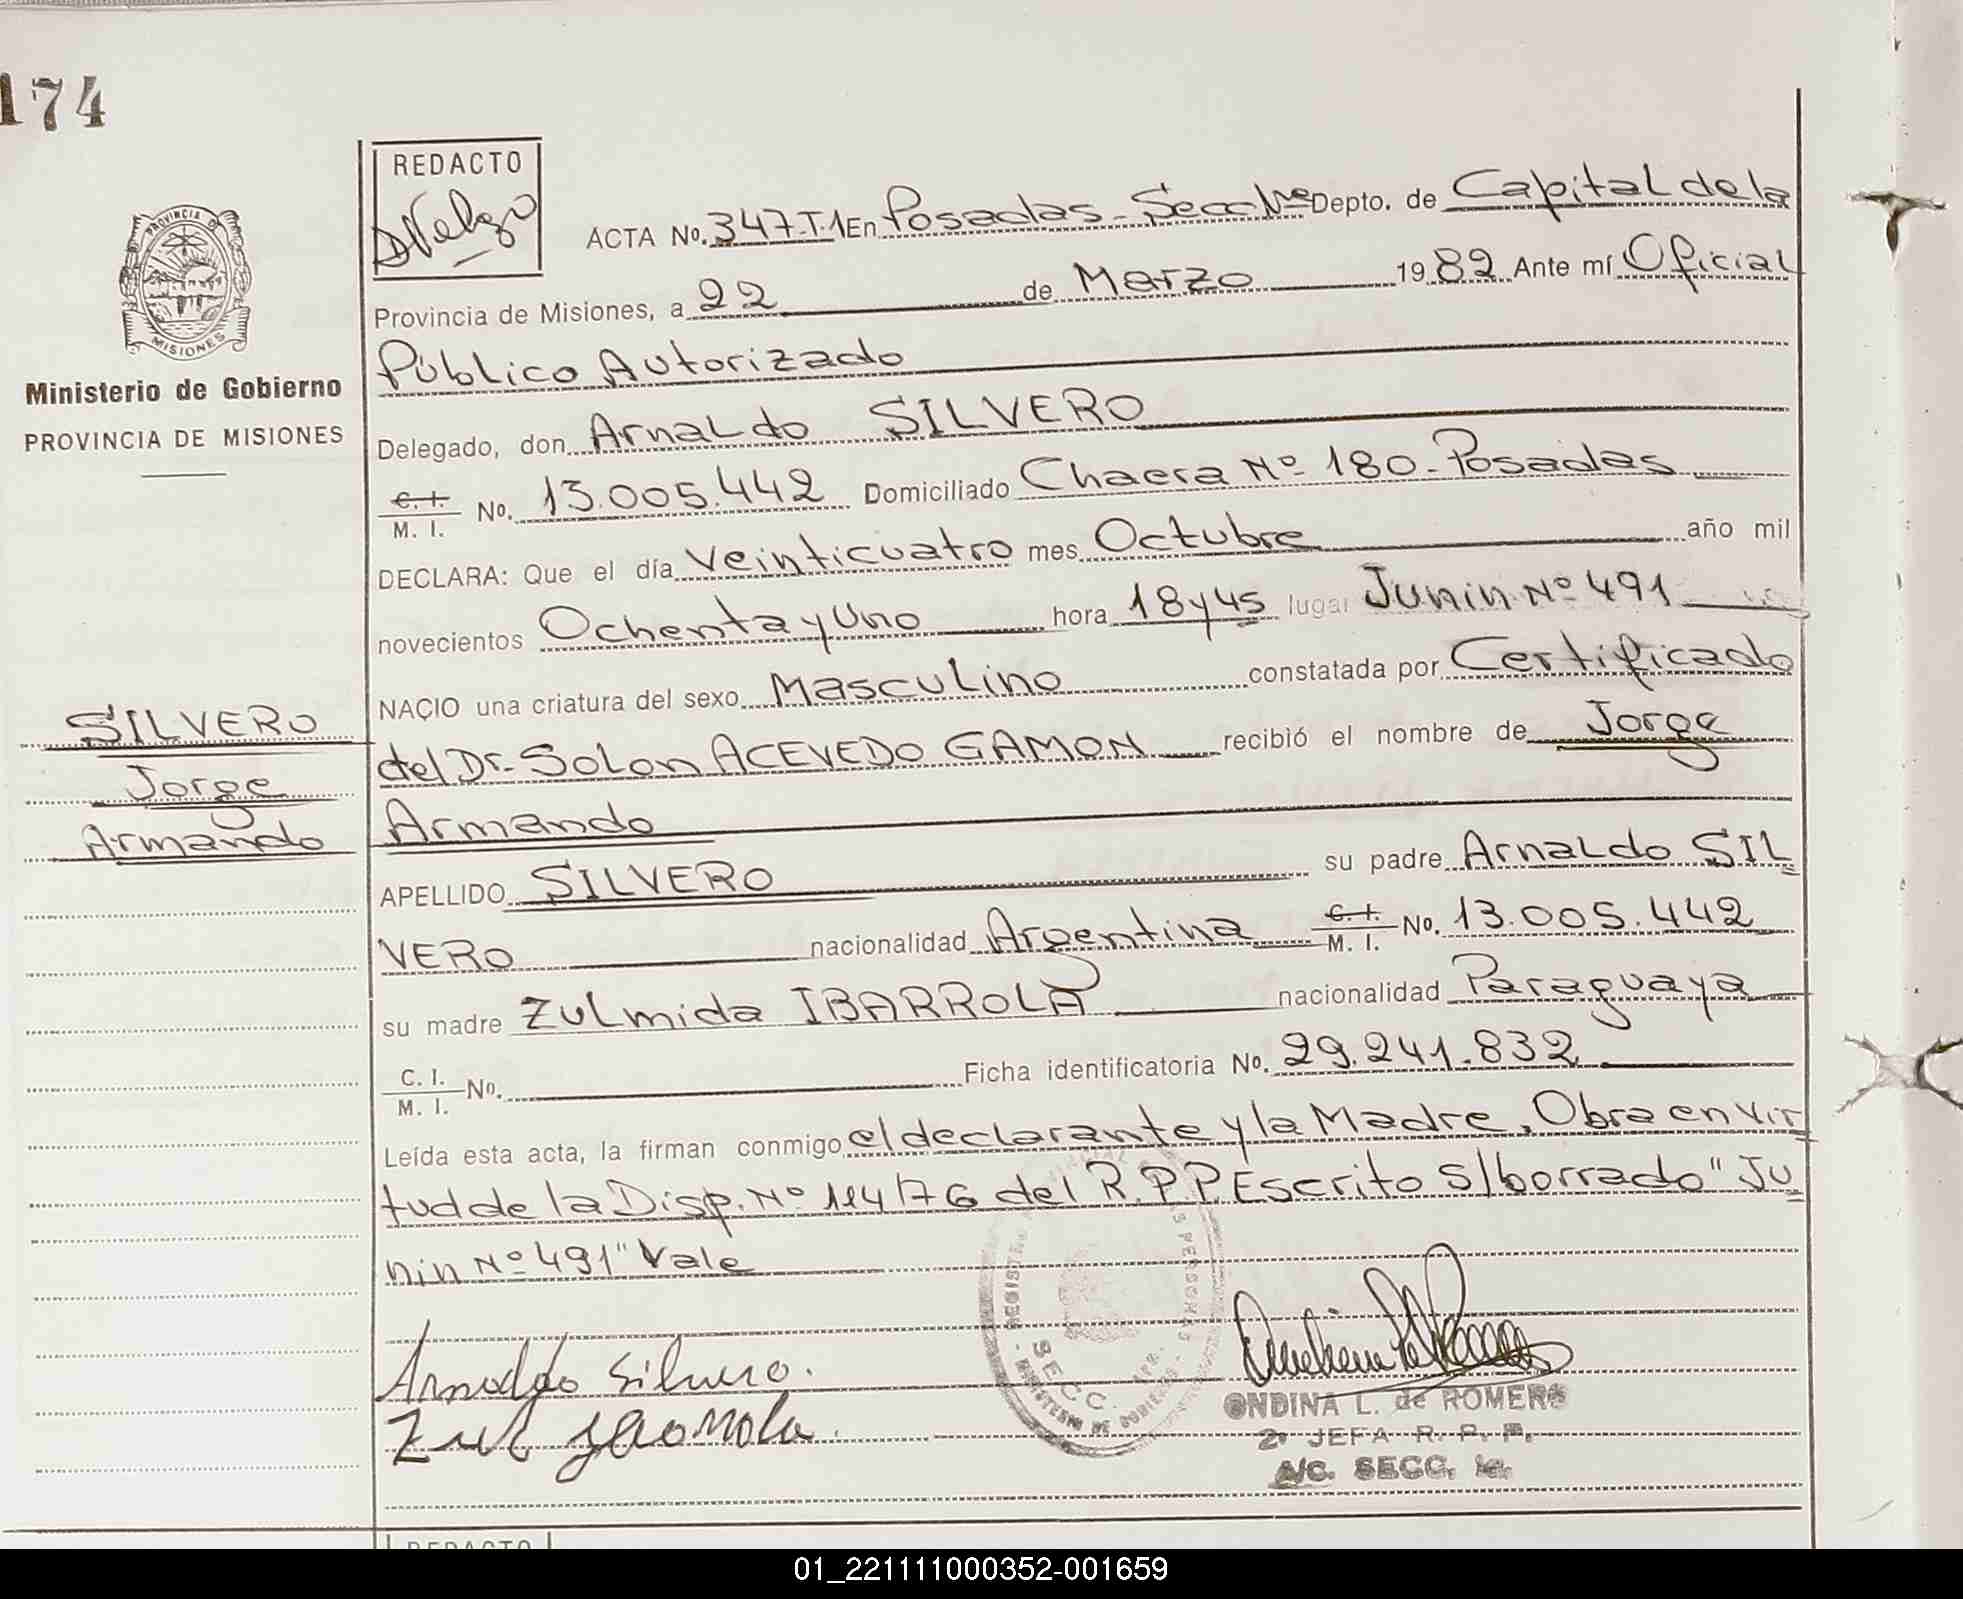 174
REDACTO
ACTA No. 347-T.1 En Posadas - Secc 1ra Depto. de Capital de la
Provincia de Misiones, a 22 de Marzo 1982 Ante mí Oficial
Público Autorizado
PROVINCIA DE
MISIONES
Ministerio de Gobierno
PROVINCIA DE MISIONES
Delegado, don Arnaldo SILVERO
C. I. / M. I. No. 13.005.442 Domiciliado Chacra Nº 180 - Posadas
DECLARA: Que el día veinticuatro mes Octubre año mil
novecientos Ochenta y Uno hora 18 y 45 lugar Junin Nº 491
NACIO una criatura del sexo Masculino constatada por Certificado
SILVERO
Jorge
Armando
del Dr. Solon ACEVEDO GAMON recibió el nombre de Jorge
Armando
APELLIDO SILVERO su padre Arnaldo SIL
VERO nacionalidad Argentina C. I. / M. I. No. 13.005.442
su madre Zulmida IBARROLA nacionalidad Paraguaya
C. I. / M. I. No. Ficha identificatoria No. 29.241.832
Leída esta acta, la firman conmigo el declarante y la Madre, Obra en vir
tud de la Disp. Nº 114/76 del R.P.P. Escrito s/borrado "Ju
nin Nº 491" Vale
Arnaldo Silvero.
ONDINA L. de ROMERO
2º JEFA R. P. P.
A/C. SECC. 1a.
REDACTO
01_221111000352-001659